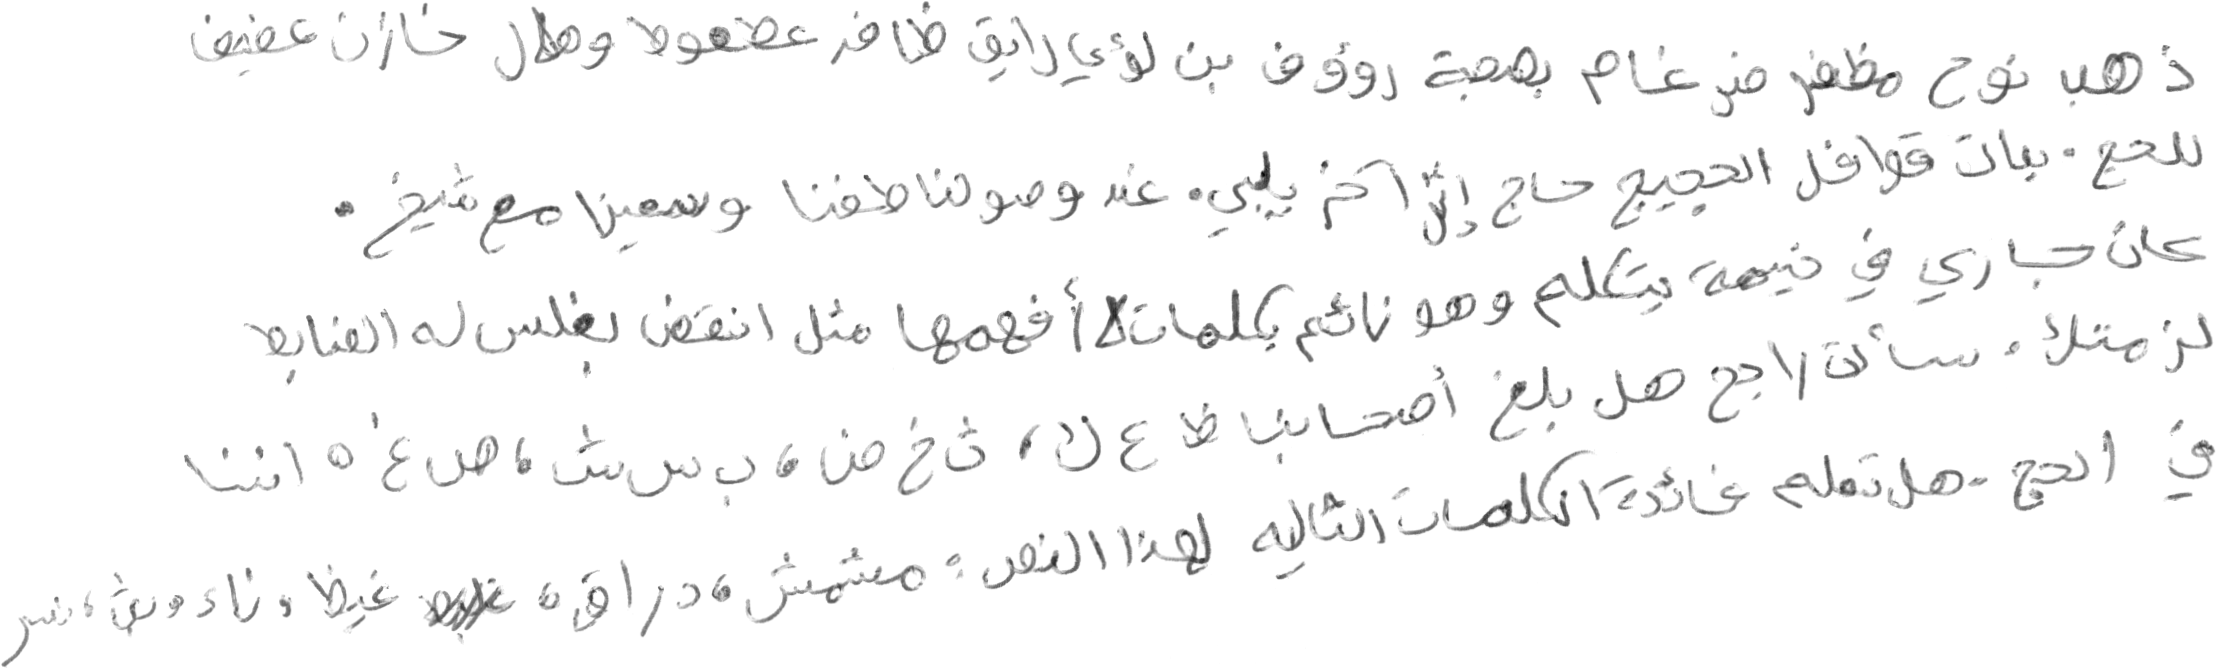 ذهب نوح مظفر ضرغام بصحبة رؤوف بن لؤي رايق ظافر عطعوط وهلال خازن عفيف
للحج . بيات قوافل الحجيج حاج إثر آخر يلبي . عند وصولنا طفنا وسعينا مع شيخ .
كان جباري في خيمة يتكلم وهو نائم بكلمات لا أفهمها مثل انقض بغلس له الضابط
لزمتك . سألت راجح هل بلغ أصحابنا ظ ع ك ، ث خ ض ، ب س ش ، ص غ ه اننا
في الحج . هل تعلم فائدة الكلمات التاليه لهذا النص : مشمش ، دراق ، غيظ ، ناء ، بئر